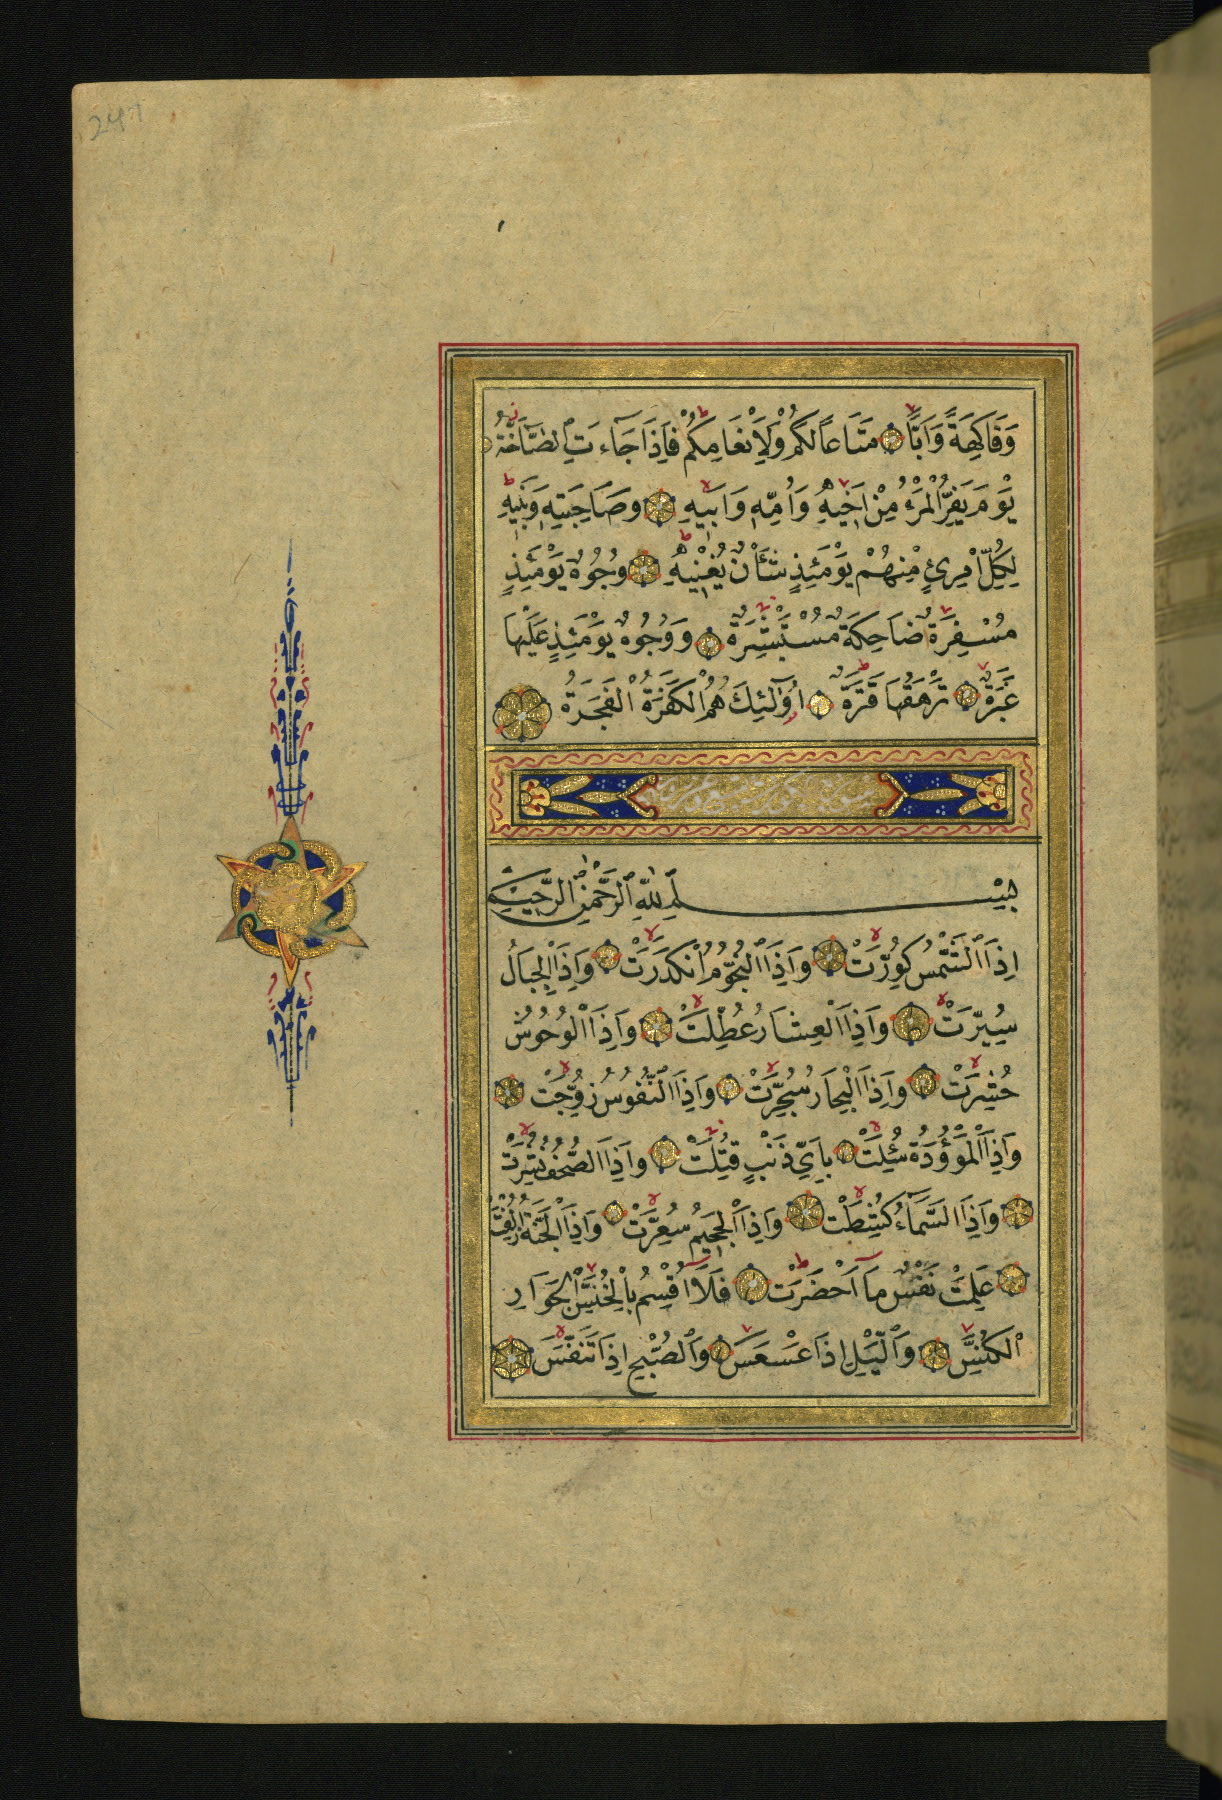 247
وَفَاكِهَةً وَاَبًّا مَتَاعًا لَكُمْ وَلِاَنْعَامِكُمْ فَاِذَا جَٓاءَتِ الصَّٓاخَّةُ
يَوْمَ يَفِرُّ الْمَرْءُ مِنْ اَخٖيهِ وَاُمِّهٖ وَاَبٖيهِ وَصَاحِبَتِهٖ وَبَنٖيهِ
لِكُلِّ امْرِئٍ مِنْهُمْ يَوْمَئِذٍ شَأْنٌ يُغْنٖيهِ وُجُوهٌ يَوْمَئِذٍ
مُسْفِرَةٌ ضَاحِكَةٌ مُسْتَبْشِرَةٌ وَوُجُوهٌ يَوْمَئِذٍ عَلَيْهَا
غَبَرَةٌ تَرْهَقُهَا قَتَرَةٌ اُولٰٓئِكَ هُمُ الْكَفَرَةُ الْفَجَرَةُ
بِسْمِ اللّٰهِ الرَّحْمٰنِ الرَّحٖيمِ
اِذَا الشَّمْسُ كُوِّرَتْ وَاِذَا النُّجُومُ انْكَدَرَتْ وَاِذَا الْجِبَالُ
سُيِّرَتْ وَاِذَا الْعِشَارُ عُطِّلَتْ وَاِذَا الْوُحُوشُ
حُشِرَتْ وَاِذَا الْبِحَارُ سُجِّرَتْ وَاِذَا النُّفُوسُ زُوِّجَتْ
وَاِذَا الْمَوْؤُدَةُ سُئِلَتْ بِاَيِّ ذَنْبٍ قُتِلَتْ وَاِذَا الصُّحُفُ نُشِرَتْ
وَاِذَا السَّمَٓاءُ كُشِطَتْ وَاِذَا الْجَحٖيمُ سُعِّرَتْ وَاِذَا الْجَنَّةُ اُزْلِفَتْ
عَلِمَتْ نَفْسٌ مَٓا اَحْضَرَتْ فَلَٓا اُقْسِمُ بِالْخُنَّسِ الْجَوَارِ
الْكُنَّسِ وَالَّيْلِ اِذَا عَسْعَسَ وَالصُّبْحِ اِذَا تَنَفَّسَ